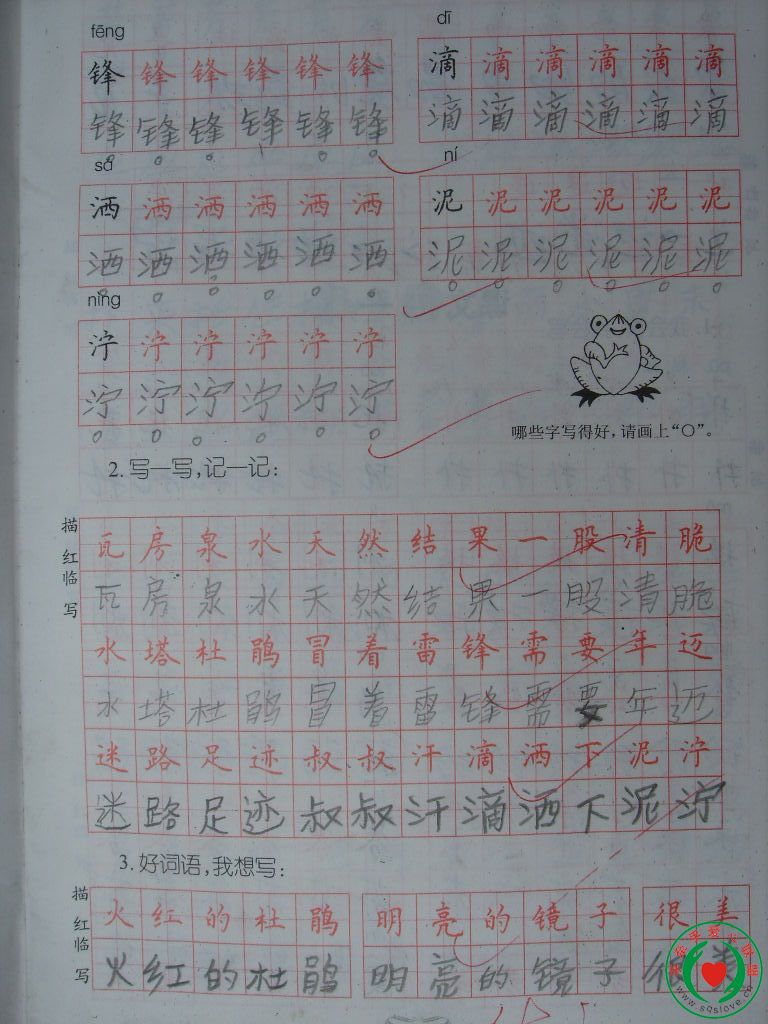 fēng dī
锋锋锋锋锋锋 滴滴滴滴滴滴
锋锋锋锋锋锋 滴滴滴滴滴滴
sǎ ní
洒洒洒洒洒洒 泥泥泥泥泥泥
洒洒洒洒洒洒 泥泥泥泥泥泥
nìng
泞泞泞泞泞泞
泞泞泞泞泞泞
哪些字写得好，请画上“○”。
2.写一写，记一记：
描红临写
瓦房泉水天然结果一股清脆
瓦房泉水天然结果一股清脆
水塔杜鹃冒着雷锋需要年迈
水塔杜鹃冒着雷锋需要年迈
迷路足迹叔叔汗滴洒下泥泞
迷路足迹叔叔汗滴洒下泥泞
3.好词语，我想写：
描红临写
火红的杜鹃 明亮的镜子 很
火红的杜鹃 明亮的镜子 很
www.sqslove.cn